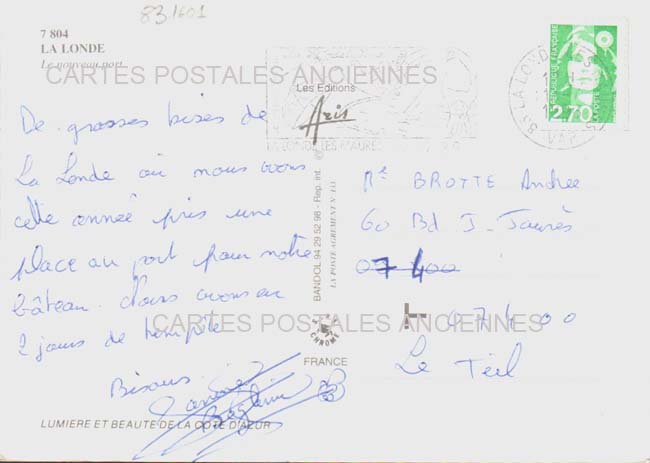 83.1601
7 804
LA LONDE
Le nouveau port
CARTES POSTALES ANCIENNES
Les Editions
Aris
LA LONDE LES MAURES
83 LA LONDE
VAR
REPUBLIQUE FRANÇAISE
2,70
LA POSTE
De grosses bises de
La Londe où nous avons
cette année pris une
place au port pour notre
bâteau. Nous avons eu
2 jours de tempête
Bisous.
BANDOL 94 29 52 98 - Rep. int.
LA POSTE AGREMENT N° 113
CHROME
FRANCE
BROTTE Andrée
60 Bd J. Jaurès
07400
07400
Le Teil
CARTES POSTALES ANCIENNES
LUMIERE ET BEAUTE DE LA COTE D'AZUR